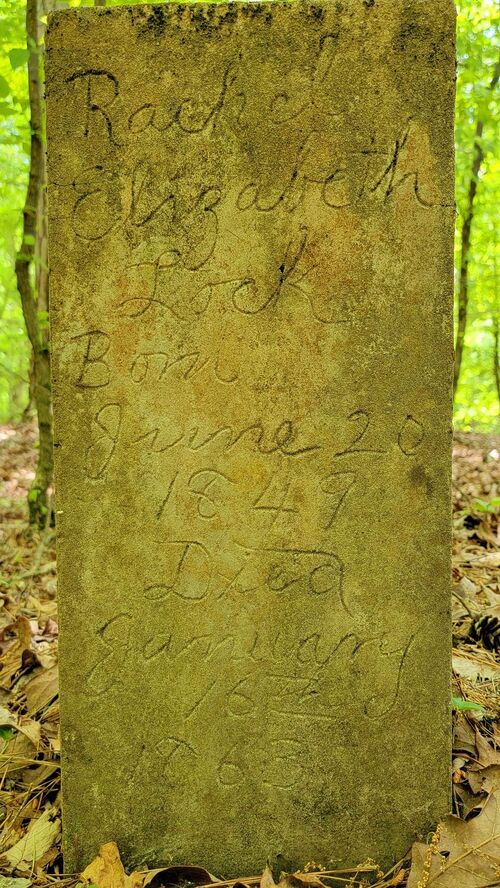 Rachel
Elizabeth
Lock
Born
June 20
1849
Died
January
16th
1863